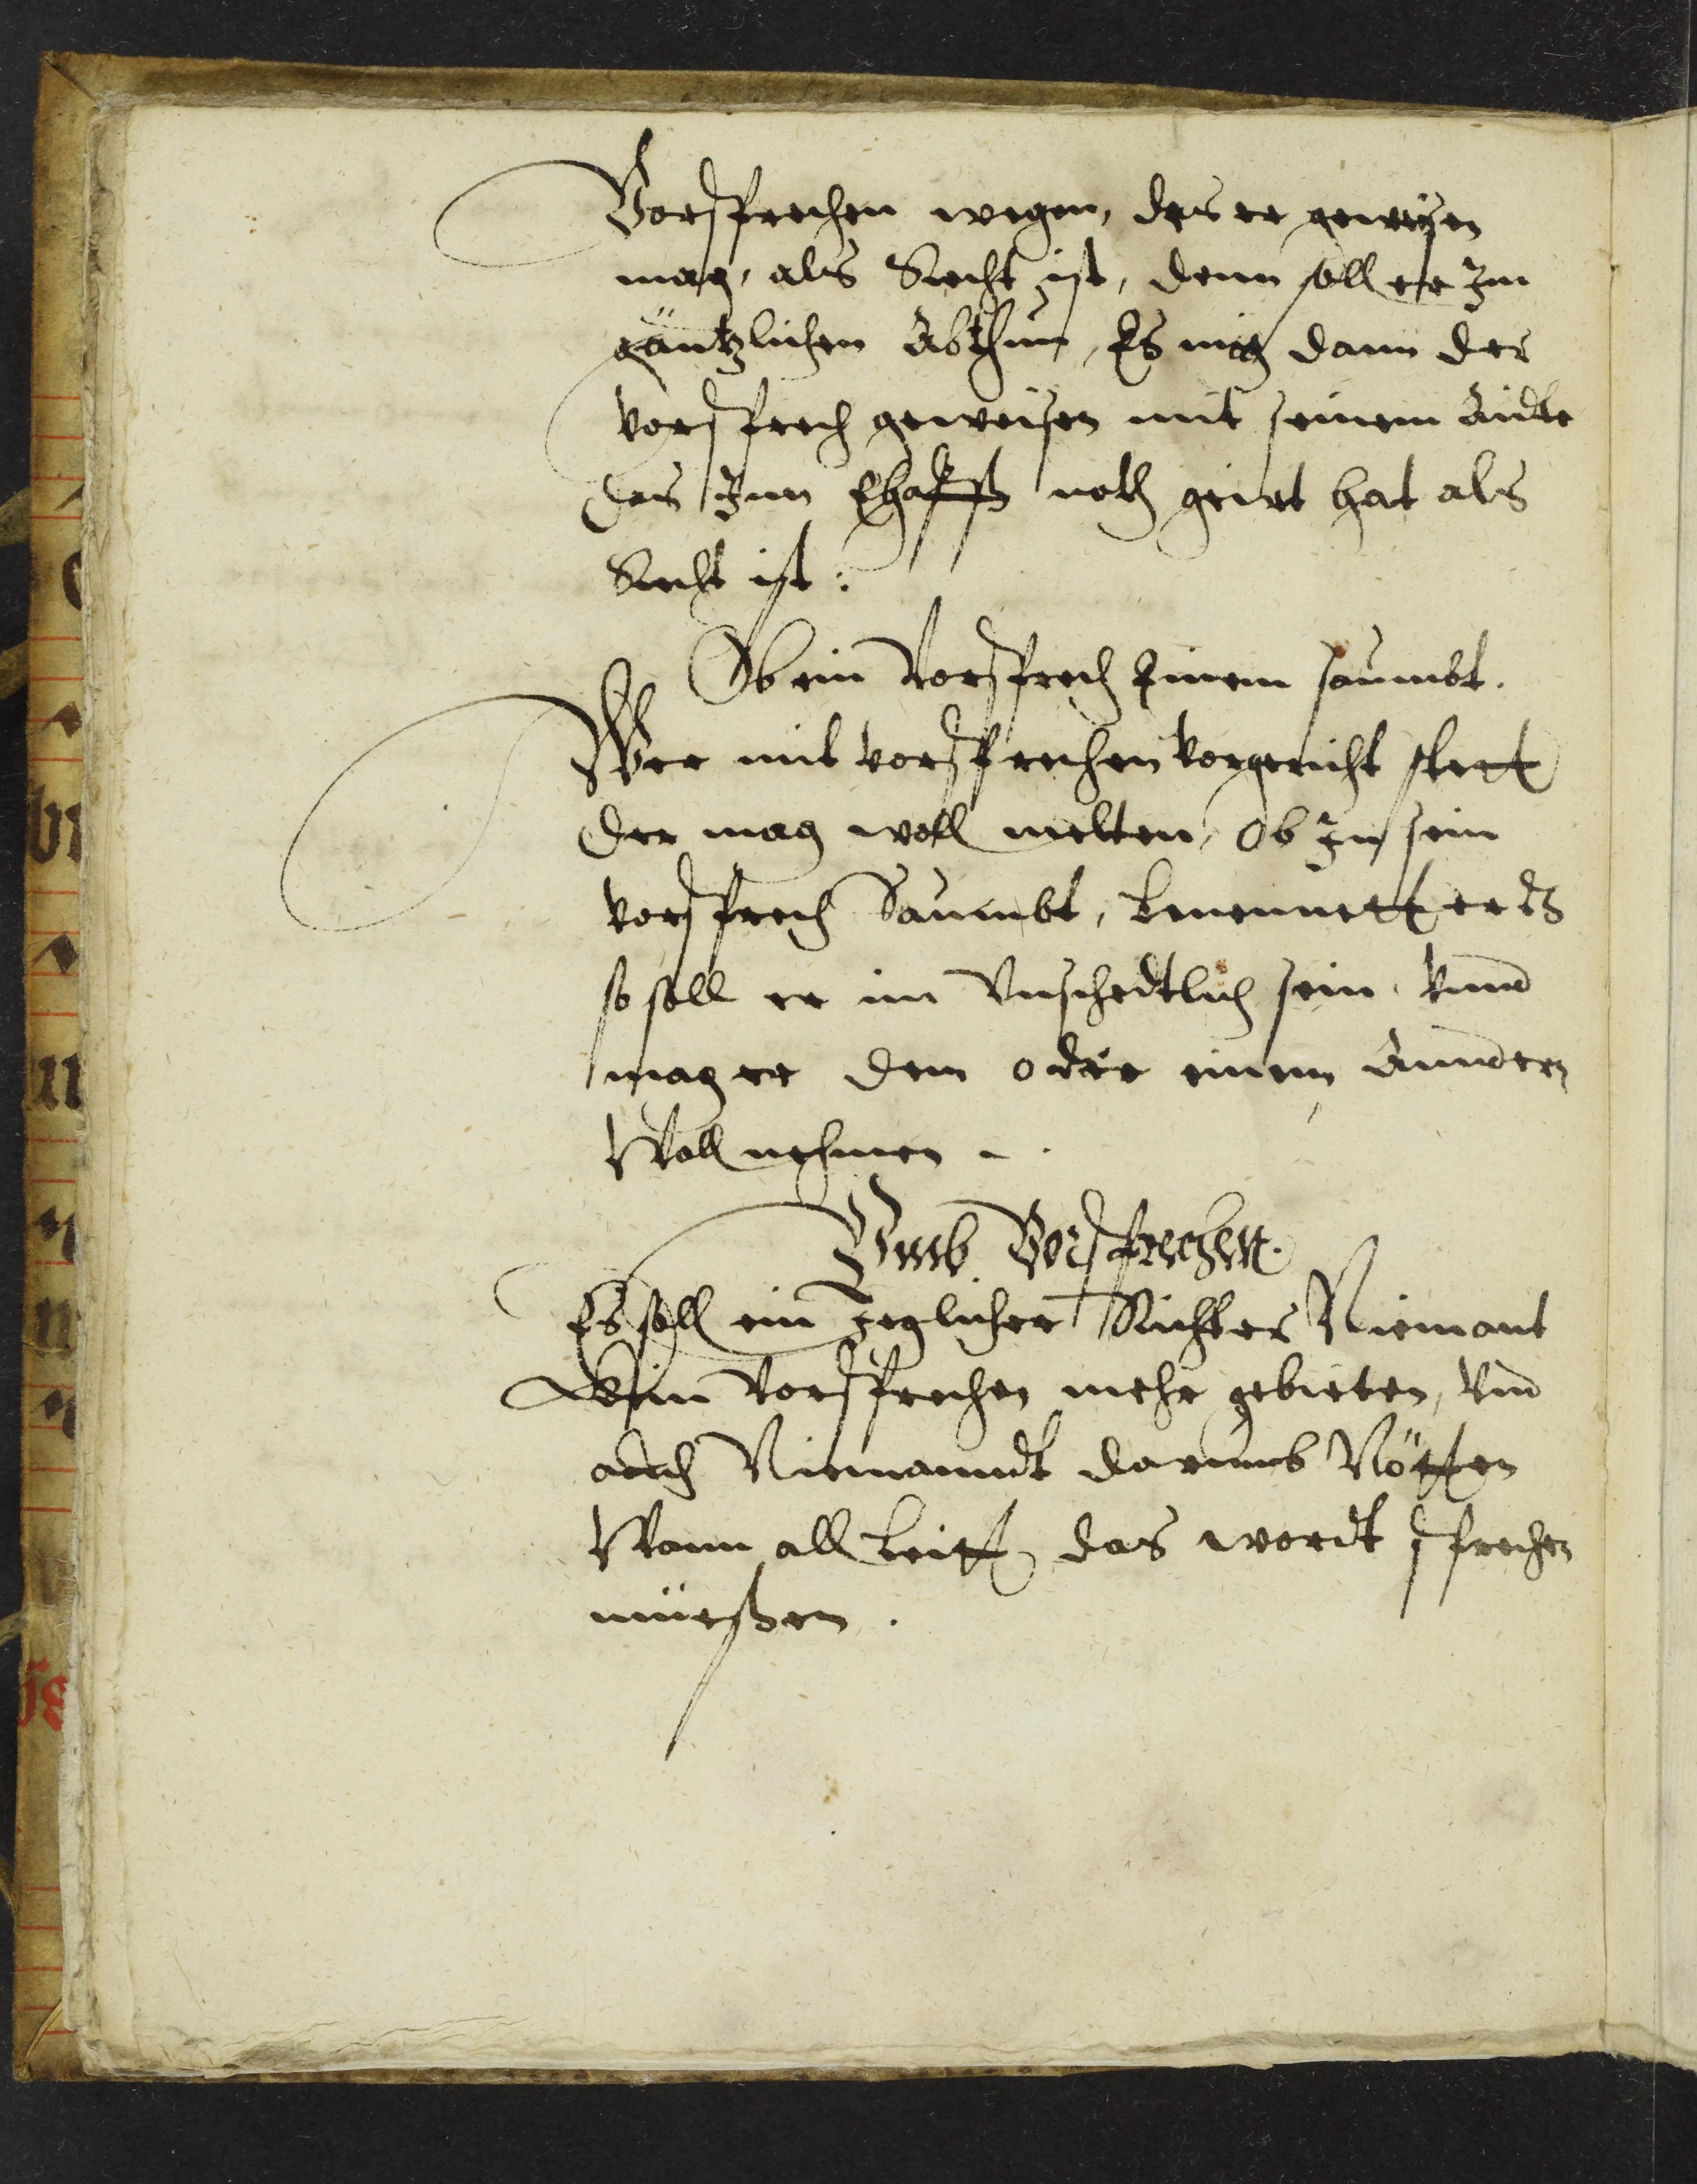 Vorsprechen wegen, das er geweisen
mag, als Recht ist, denn soll er Im
gäntzlichen Abthun, Es müg dann der
vorsprech geweisen mit seinem Aidte
das Inn Ehafft noth geirt hat als
Recht ist:
Ob ein Vorsprech Einem saumbt.
Wer mit vorsprechen vorgericht stett
der mag woll melten, Ob In sein
vorsprech Saumbt, benennett er ds
so soll er im Vnschedtlich sein, vnnd
mag er den oder einem Anndern
Woll nehmen.
Vmb Vorsprechen.
Es soll ein Jeglicher Richter Niemant
Kein Vorsprechen mehr gebieten, vnd
auch Niemanndt darumb Nötten
Wann all Leitt das wordt sprechen
müeßen.